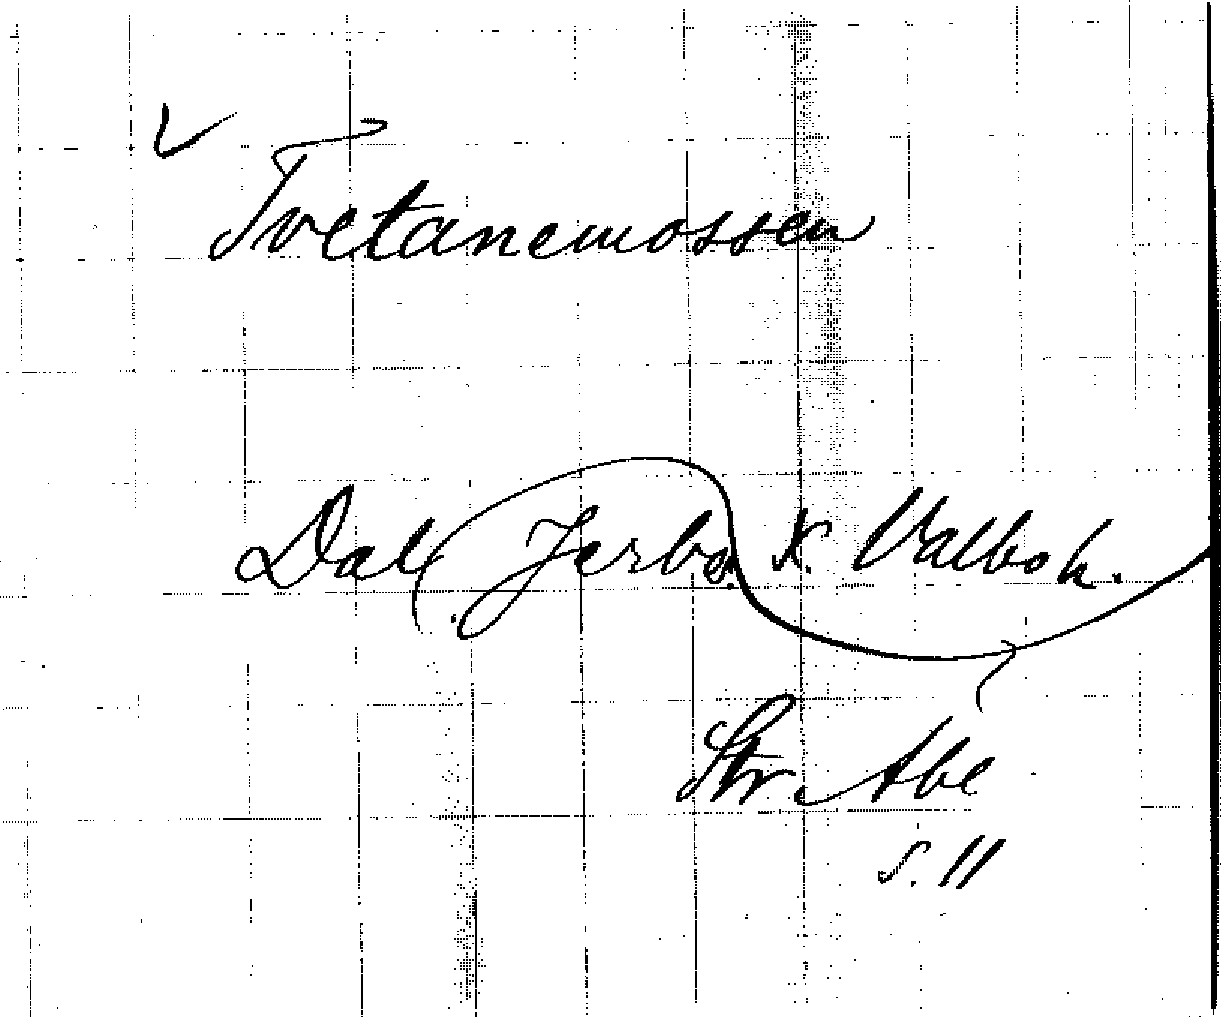 Tvetanemossen
Dal, Jerbo. K. Valboh.
Str. Abe
S. 11